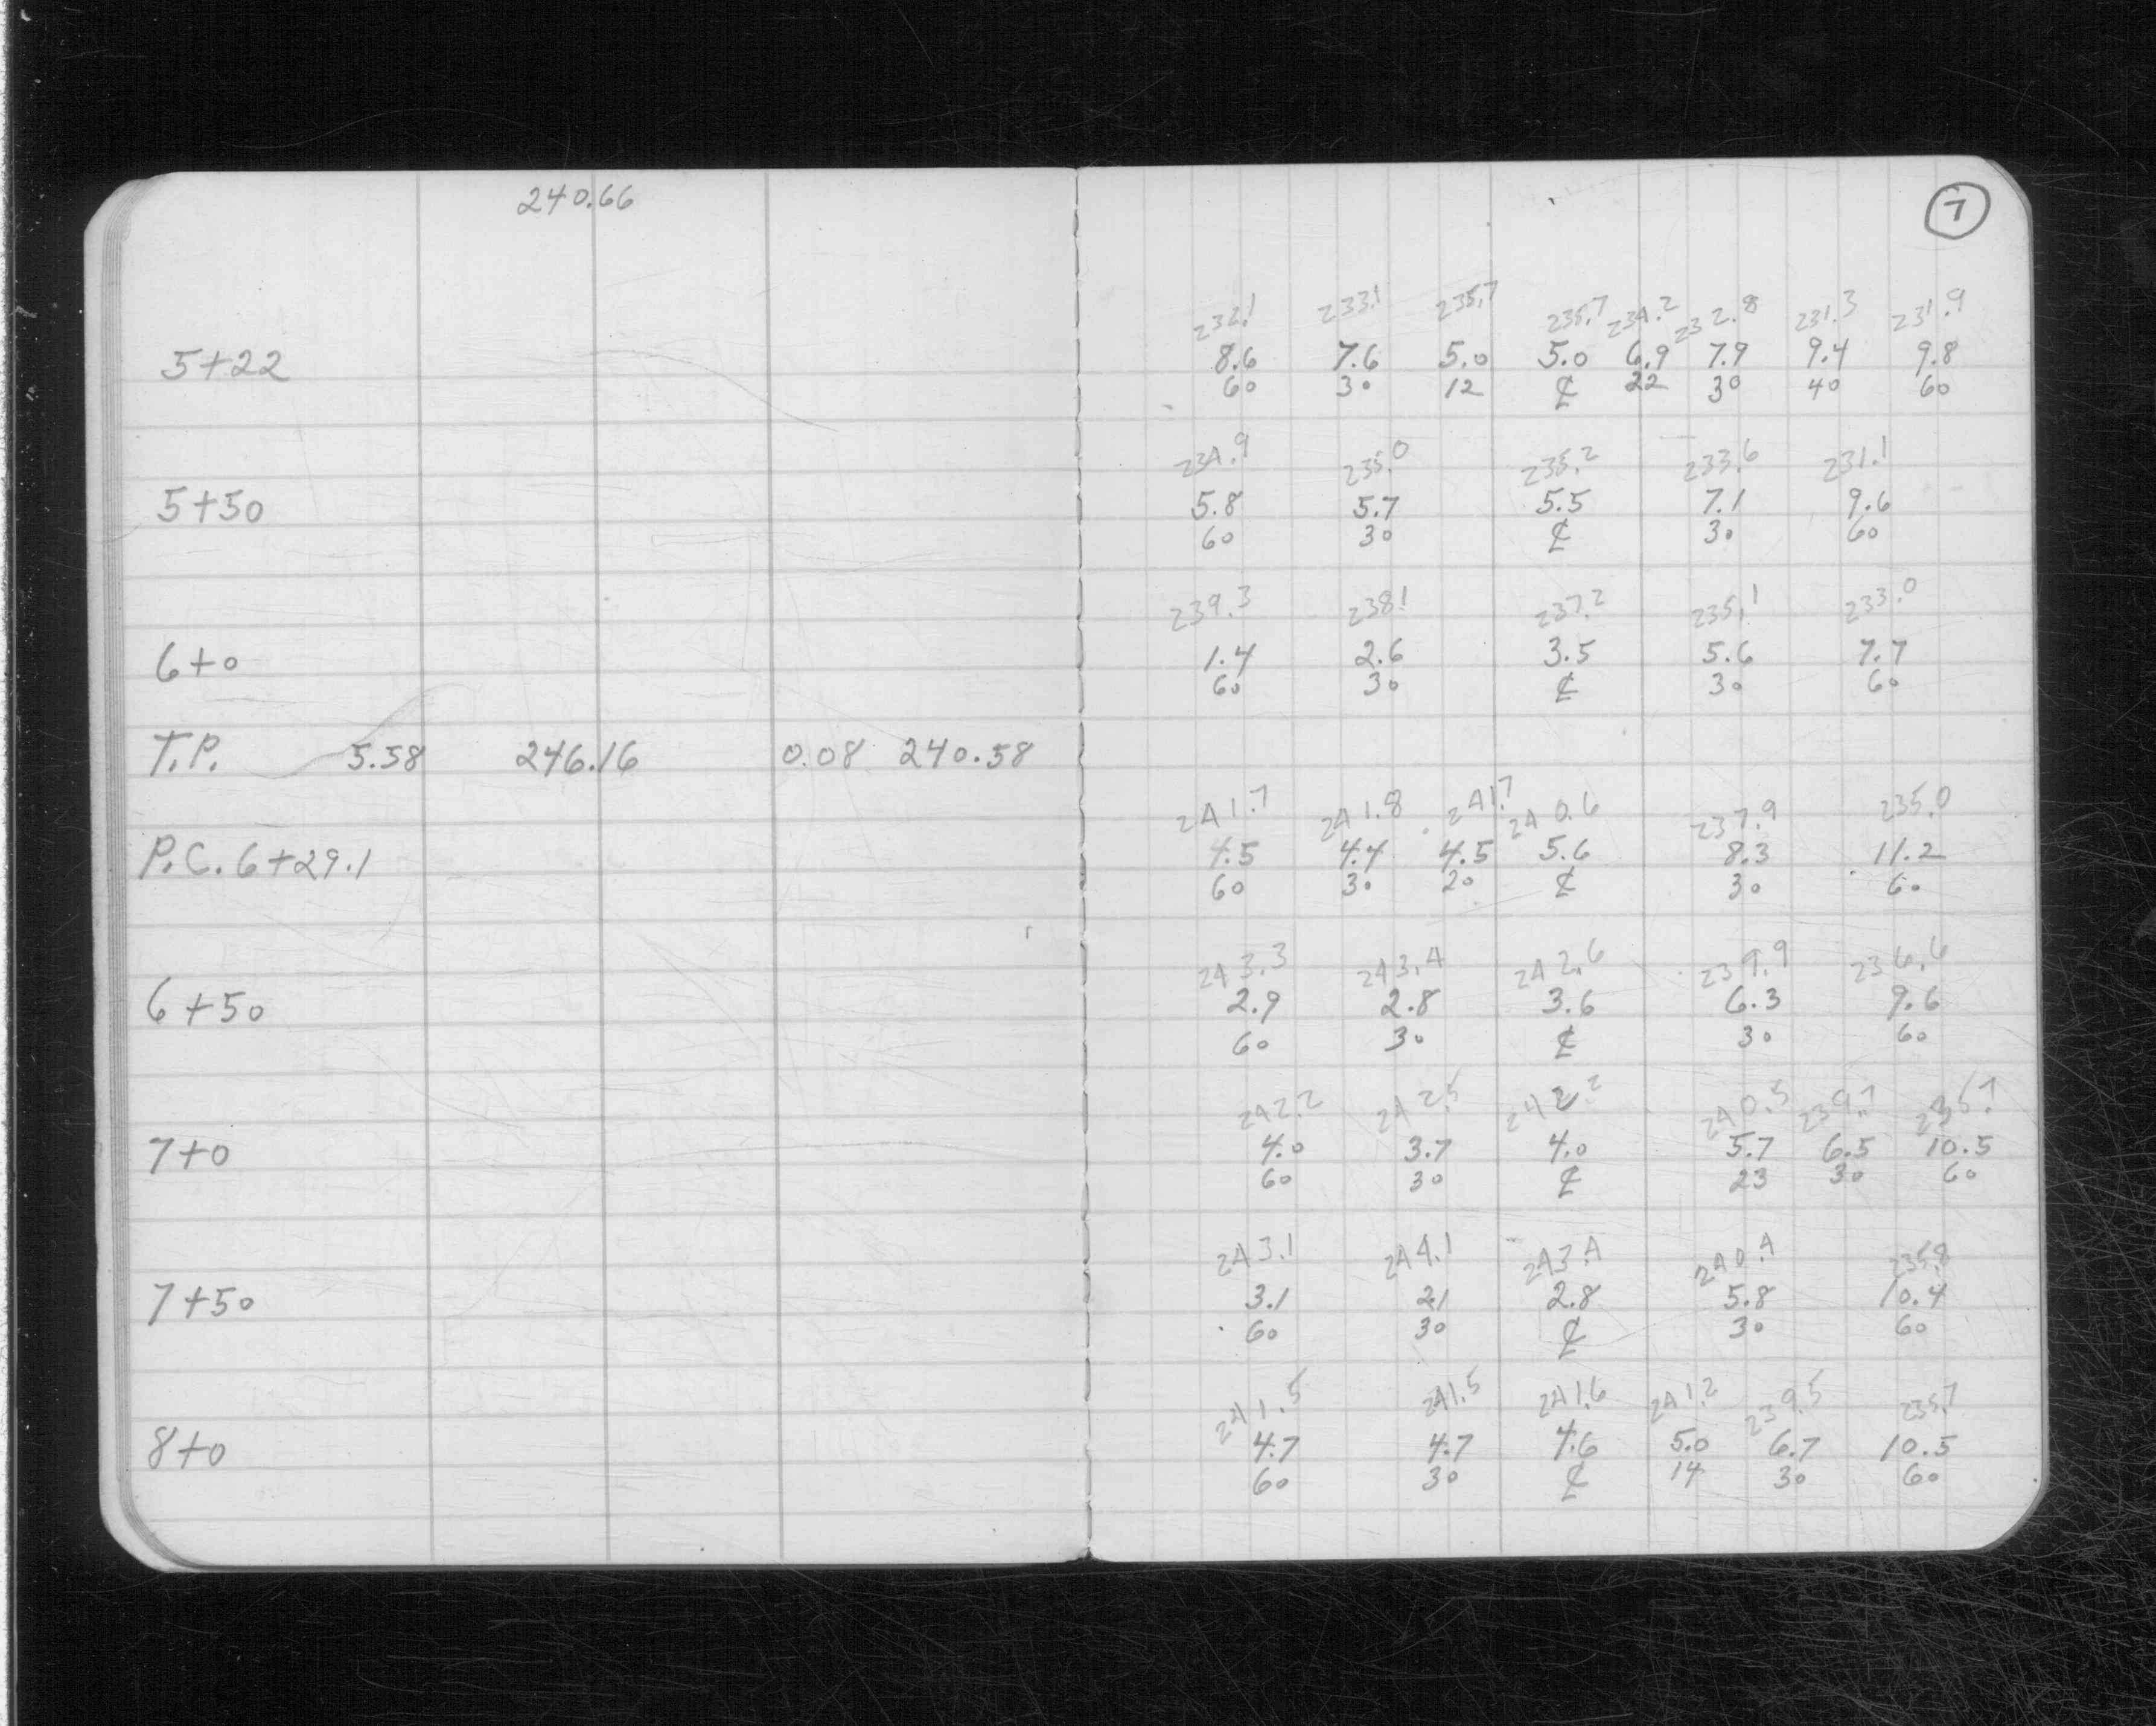 240.66
7
232.1 233.1 235.7 235.7 234.2 232.8 231.3 231.9
5+22 8.6 7.6 5.0 5.0 6.9 7.9 9.4 9.8
60 30 12 ℄ 22 30 40 60
234.9 235.0 235.2 233.6 231.1
5+50 5.8 5.7 5.5 7.1 9.6
60 30 ℄ 30 60
239.3 238.1 237.2 235.1 233.0
6+0 1.4 2.6 3.5 5.6 7.7
60 30 ℄ 30 60
T.P. 5.58 246.16 0.08 240.58
241.7 241.8 241.7 240.6 237.9 235.0
P.C. 6+29.1 4.5 4.4 4.5 5.6 8.3 11.2
60 30 20 ℄ 30 60
243.3 243.4 242.6 239.9 236.6
6+50 2.9 2.8 3.6 6.3 9.6
60 30 ℄ 30 60
242.2 242.5 242.2 240.5 239.7 235.7
7+0 4.0 3.7 4.0 5.7 6.5 10.5
60 30 ℄ 23 30 60
243.1 244.1 243.4 240.4 235.8
7+50 3.1 2.1 2.8 5.8 10.4
60 30 ℄ 30 60
241.5 241.5 241.6 241.2 239.5 235.7
8+0 4.7 4.7 4.6 5.0 6.7 10.5
60 30 ℄ 14 30 60